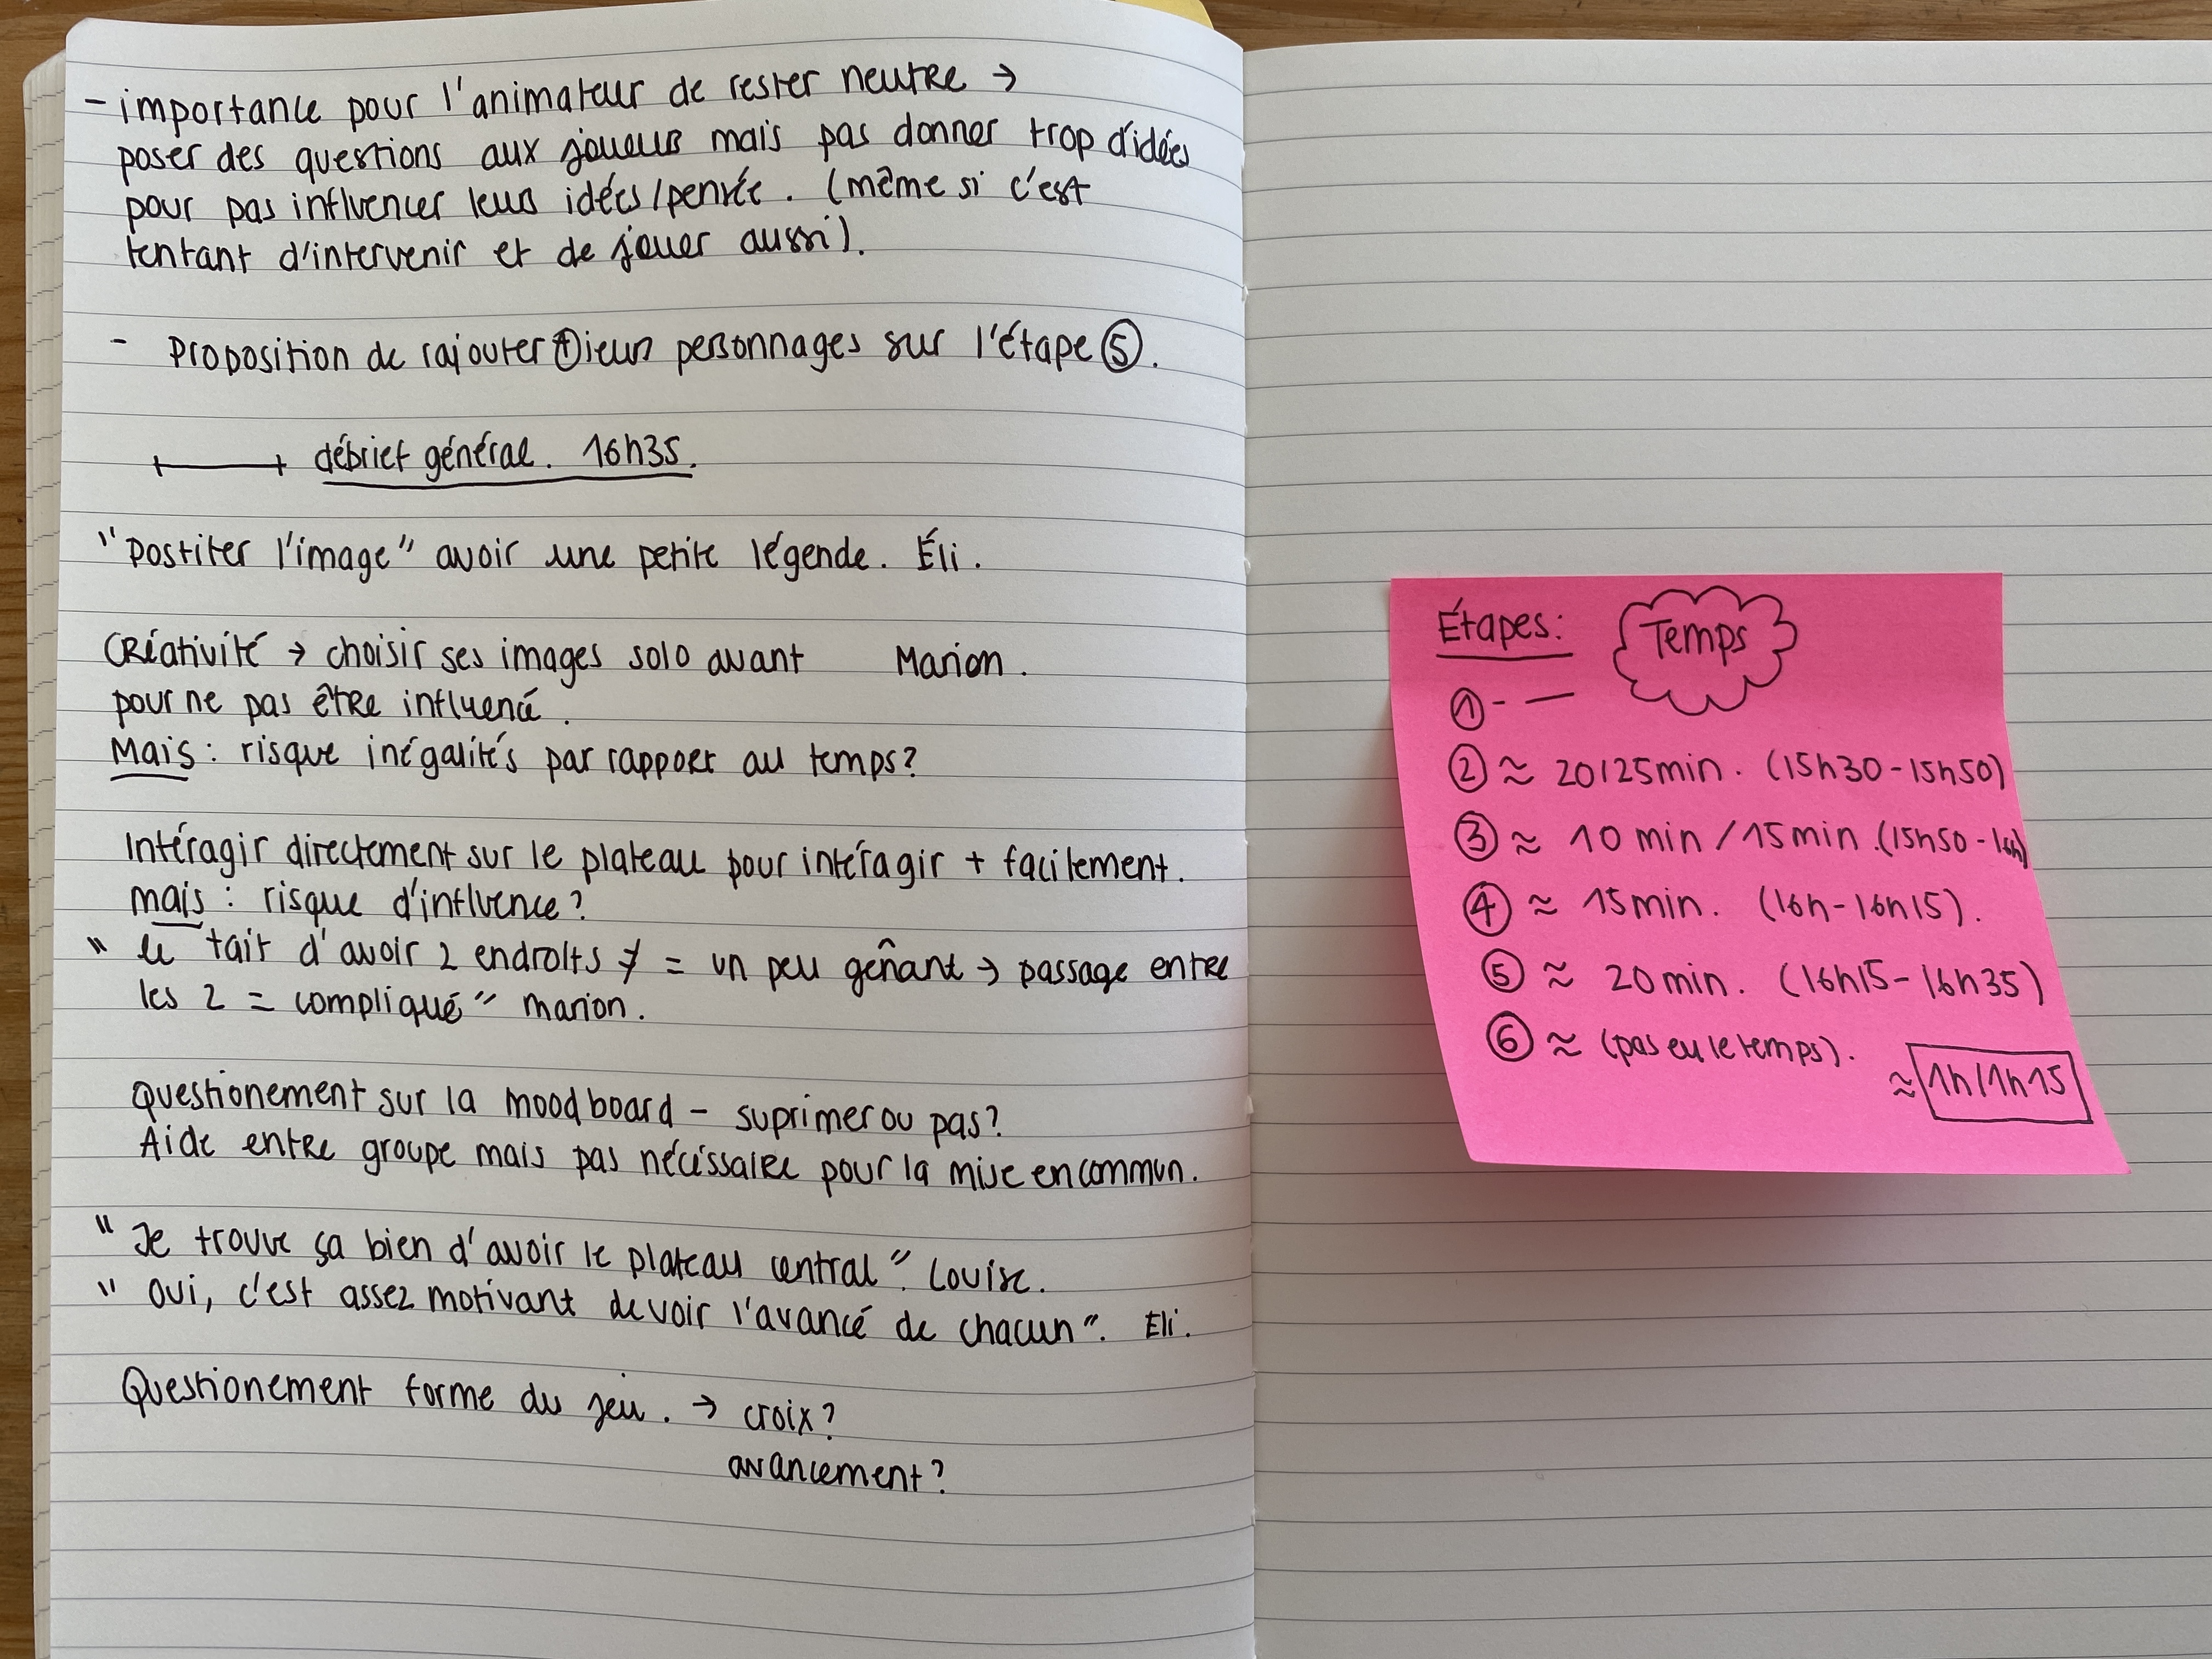 - importance pour l'animateur de rester neutre →
poser des questions aux joueurs mais pas donner trop d'idées
pour pas influencer leurs idées/pensée. (même si c'est
tentant d'intervenir et de jouer aussi).
- Proposition de rajouter ⊕ieurs personnages sur l'étape ⑤.
débrief général. 16h35.
"Postiter l'image" avoir une petite légende. Éli.
Créativité → choisir ses images solo avant Marion.
pour ne pas être influencé.
Mais : risque inégalités par rapport au temps?
Intéragir directement sur le plateau pour intéragir + facilement.
mais : risque d'influence?
"le fait d'avoir 2 endroits ≠ = un peu gênant → passage entre
les 2 = compliqué" Marion.
Questionement sur la moodboard - suprimer ou pas?
Aide entre groupe mais pas nécéssaire pour la mise en commun.
"Je trouve ça bien d'avoir le plateau central". Louise.
"oui, c'est assez motivant de voir l'avancé de chacun". Eli.
Questionement forme du jeu. → croix?
avancement?
Étapes: Temps
① - —
② ≈ 20/25min. (15h30-15h50)
③ ≈ 10 min / 15min. (15h50-16h)
④ ≈ 15min. (16h-16h15).
⑤ ≈ 20min. (16h15-16h35)
⑥ ≈ (pas eu le temps).
≈ 1h/1h15